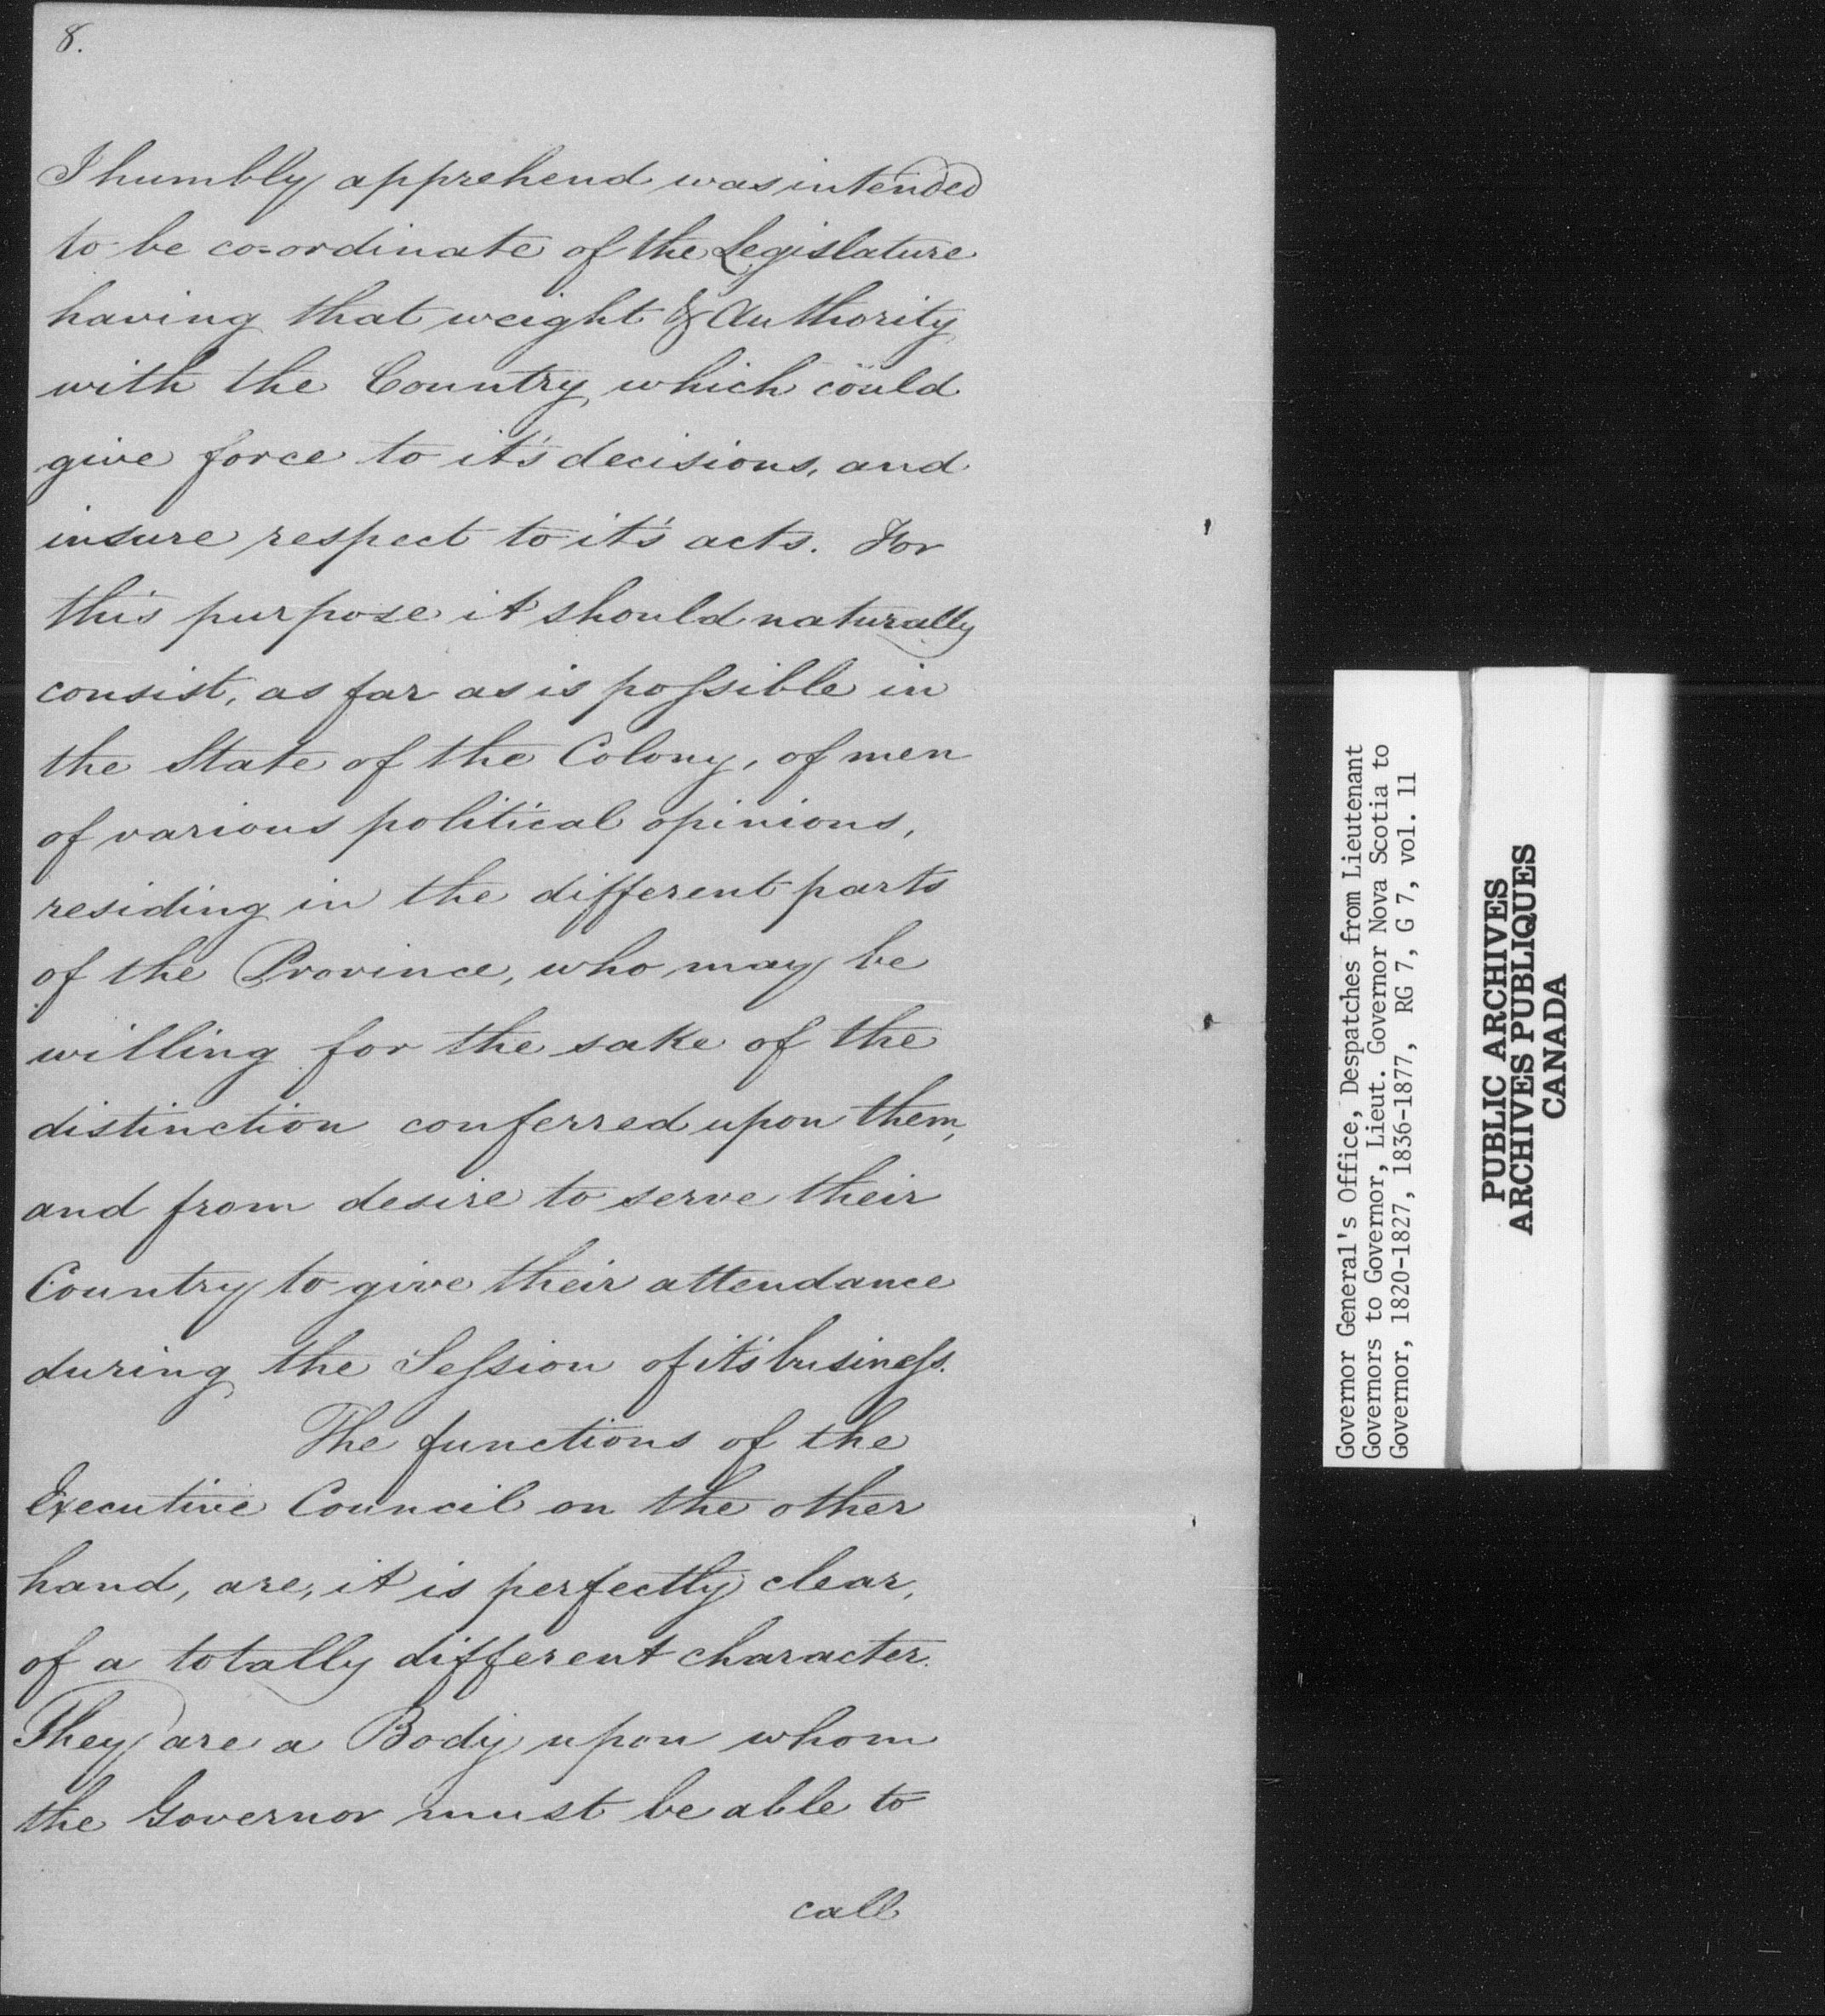 8.
I humbly apprehend was intended
to be co=ordinate of the Legislature
having that weight & Authority
with the Country, which could
give force to it's decisions, and
insure respect to it's acts. For
this purpose it should naturally
consist, as far as is poſsible in
the State of the Colony, of men
of various political opinions,
residing in the different parts
of the Province, who may be
willing for the sake of the
distinction conferred upon them,
and from desire to serve their
Country to give their attendance
during the Seſsion of it's busineſs.
The functions of the
Executive Council on the other
hand, are, it is perfectly clear,
of a totally different character.
They are a Body upon whom
the Governor must be able to
call
Governor General's Office, Despatches from Lieutenant
Governors to Governor, Lieut. Governor Nova Scotia to
Governor, 1820-1827, 1836-1877, RG 7, G 7, vol. 11
PUBLIC ARCHIVES
ARCHIVES PUBLIQUES
CANADA